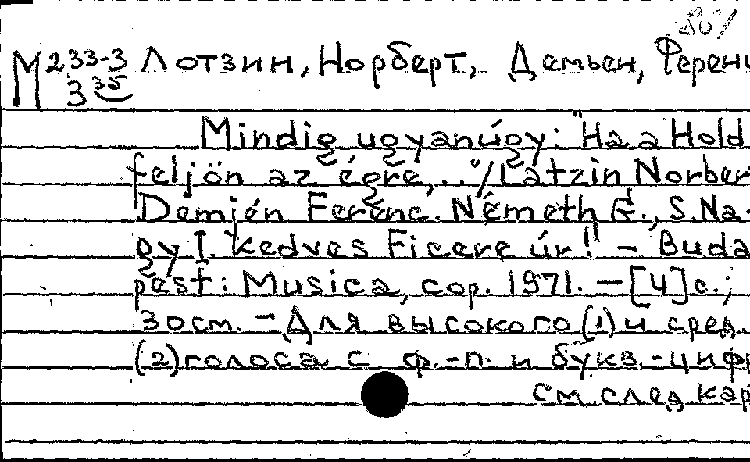 М 233-3 Лотзин, Норберт, Демьен, Ференц
3 35
Mindig ugyanúgy: "Ha a Hold
feljön az égre,.."/Latzin Norber
Demjén Ferenc. Németh G., S.Na-
gy I. Kedves Ficere úr! - Buda
pest: Musica, cop. 1971. - [4] с.;
30см. - Для высокого (1) и сред.
(2) голоса с ф.-п. и букв.-цифр
см. след кар